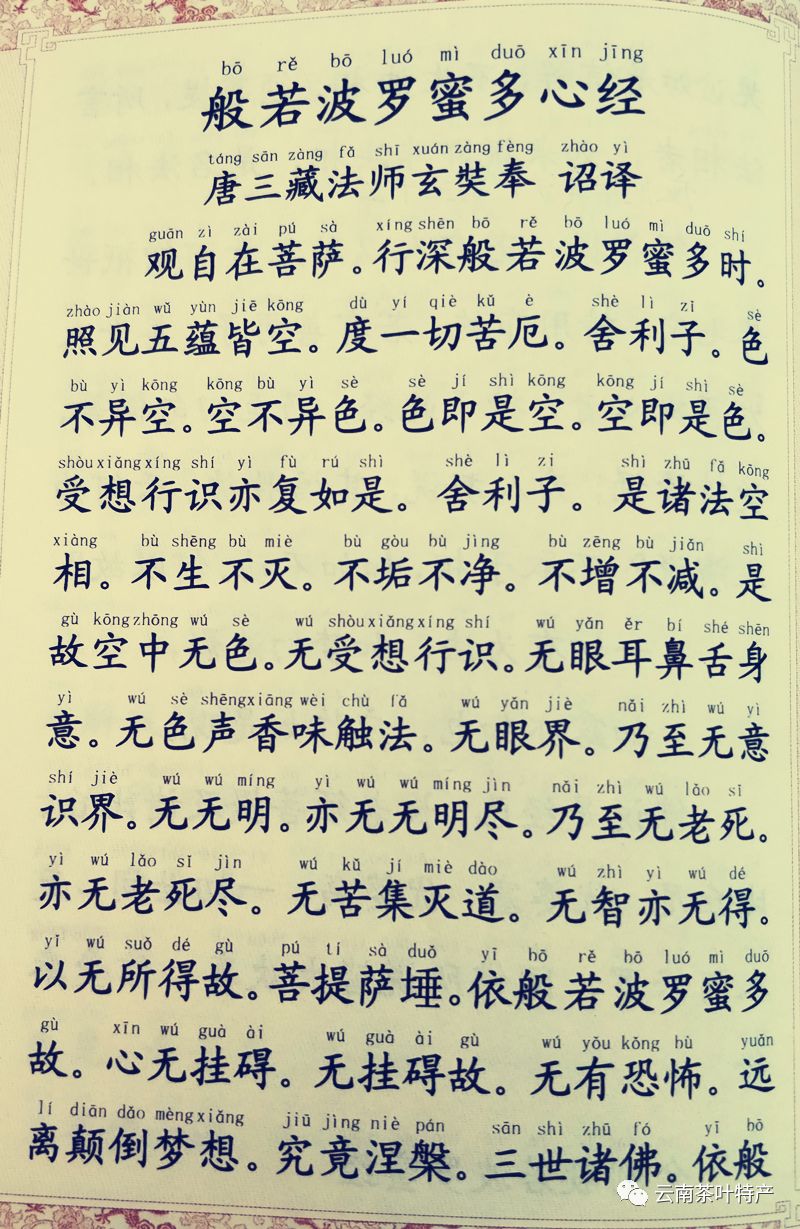 bō rě bō luó mì duō xīn jīng
般若波罗蜜多心经
táng sān zàng fǎ shī xuán zàng fèng zhào yì
唐三藏法师玄奘奉 诏译
guān zì zài pú sà xíng shēn bō rě bō luó mì duō shí
观自在菩萨。行深般若波罗蜜多时。
zhào jiàn wǔ yùn jiē kōng dù yí qiè kǔ è shè lì zi sè
照见五蕴皆空。度一切苦厄。舍利子。色
bù yì kōng kōng bù yì sè sè jí shì kōng kōng jí shì sè
不异空。空不异色。色即是空。空即是色。
shòu xiǎng xíng shí yì fù rú shì shè lì zi shì zhū fǎ kōng
受想行识亦复如是。舍利子。是诸法空
xiàng bù shēng bù miè bù gòu bù jìng bù zēng bù jiǎn shì
相。不生不灭。不垢不净。不增不减。是
gù kōng zhōng wú sè wú shòu xiǎng xíng shí wú yǎn ěr bí shé shēn
故空中无色。无受想行识。无眼耳鼻舌身
yì wú sè shēng xiāng wèi chù fǎ wú yǎn jiè nǎi zhì wú yì
意。无色声香味触法。无眼界。乃至无意
shí jiè wú wú míng yì wú wú míng jìn nǎi zhì wú lǎo sǐ
识界。无无明。亦无无明尽。乃至无老死。
yì wú lǎo sǐ jìn wú kǔ jí miè dào wú zhì yì wú dé
亦无老死尽。无苦集灭道。无智亦无得。
yǐ wú suǒ dé gù pú tí sà duǒ yī bō rě bō luó mì duō
以无所得故。菩提萨埵。依般若波罗蜜多
gù xīn wú guà ài wú guà ài gù wú yǒu kǒng bù yuǎn
故。心无挂碍。无挂碍故。无有恐怖。远
lí diān dǎo mèng xiǎng jiū jìng niè pán sān shì zhū fó yī bō
离颠倒梦想。究竟涅槃。三世诸佛。依般
云南茶叶特产